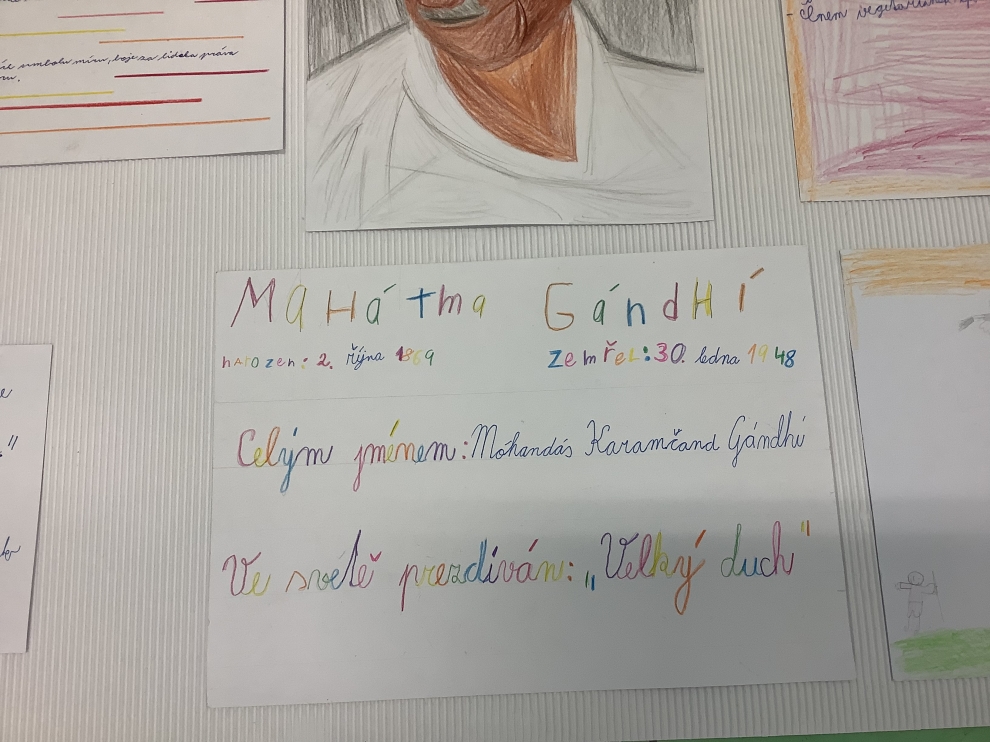 símbolu míru, boje za lidská práva
- Členem
Mahátma Gándhí
narozen: 2. října 1869 zemřel: 30. ledna 1948
Celým jménem: Móhandás Karamčand Gándhí
Ve světě prezdíván: „Velký duch"